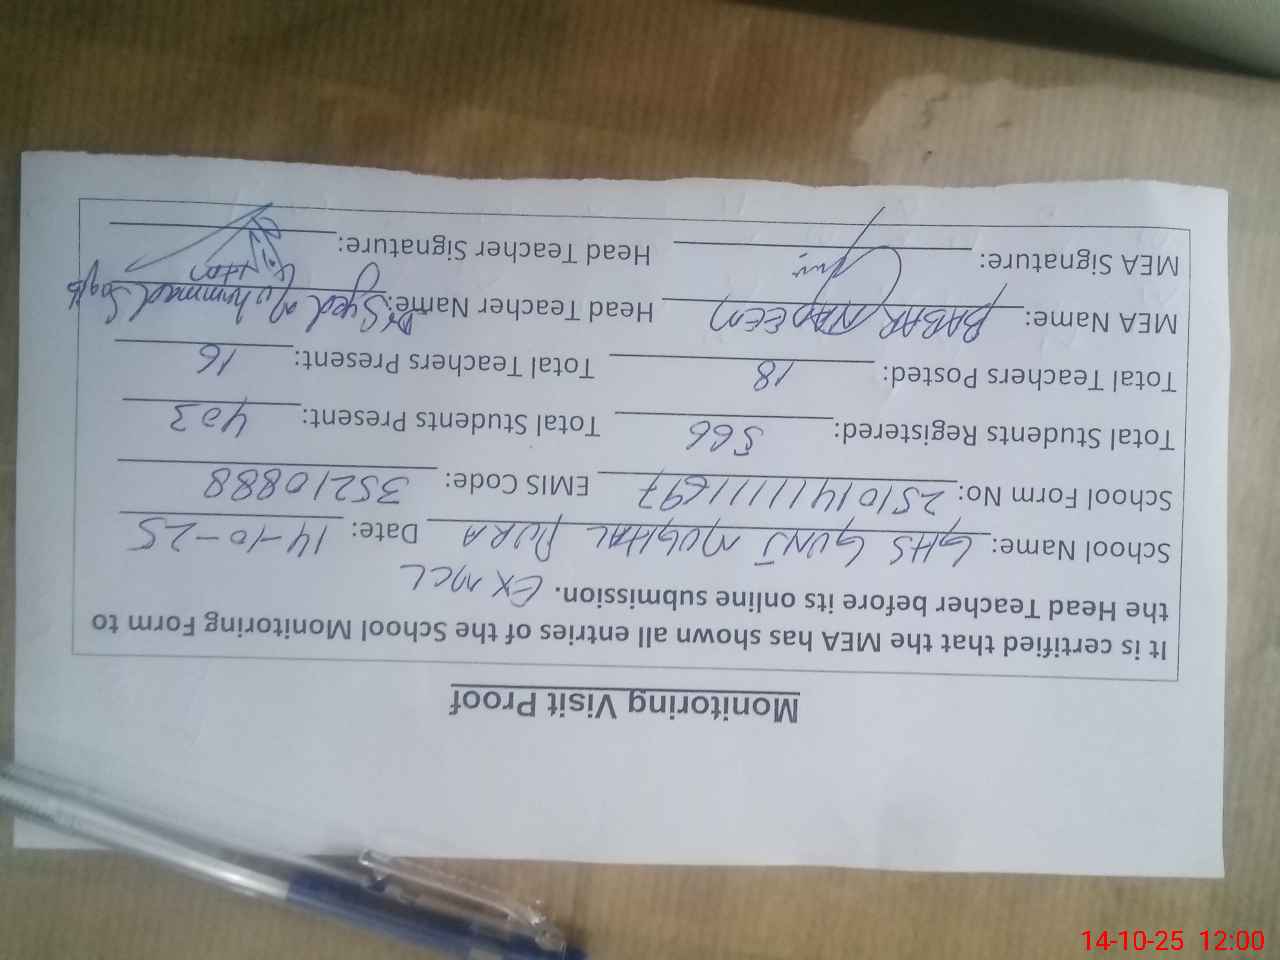 Monitoring Visit Proof
It is certified that the MEA has shown all entries of the School Monitoring Form to
the Head Teacher before its online submission. EX MCL
School Name: GHS GUNJ MUGHAL PURA Date: 14-10-25
School Form No: 251014111111697 EMIS Code: 35210888
Total Students Registered: 566 Total Students Present: 403
Total Teachers Posted: 18 Total Teachers Present: 16
MEA Name: BABAR NADEEM Head Teacher Name: Dr Syed Muhammad Saqib
MEA Signature: Head Teacher Signature:
14-10-25 12:00